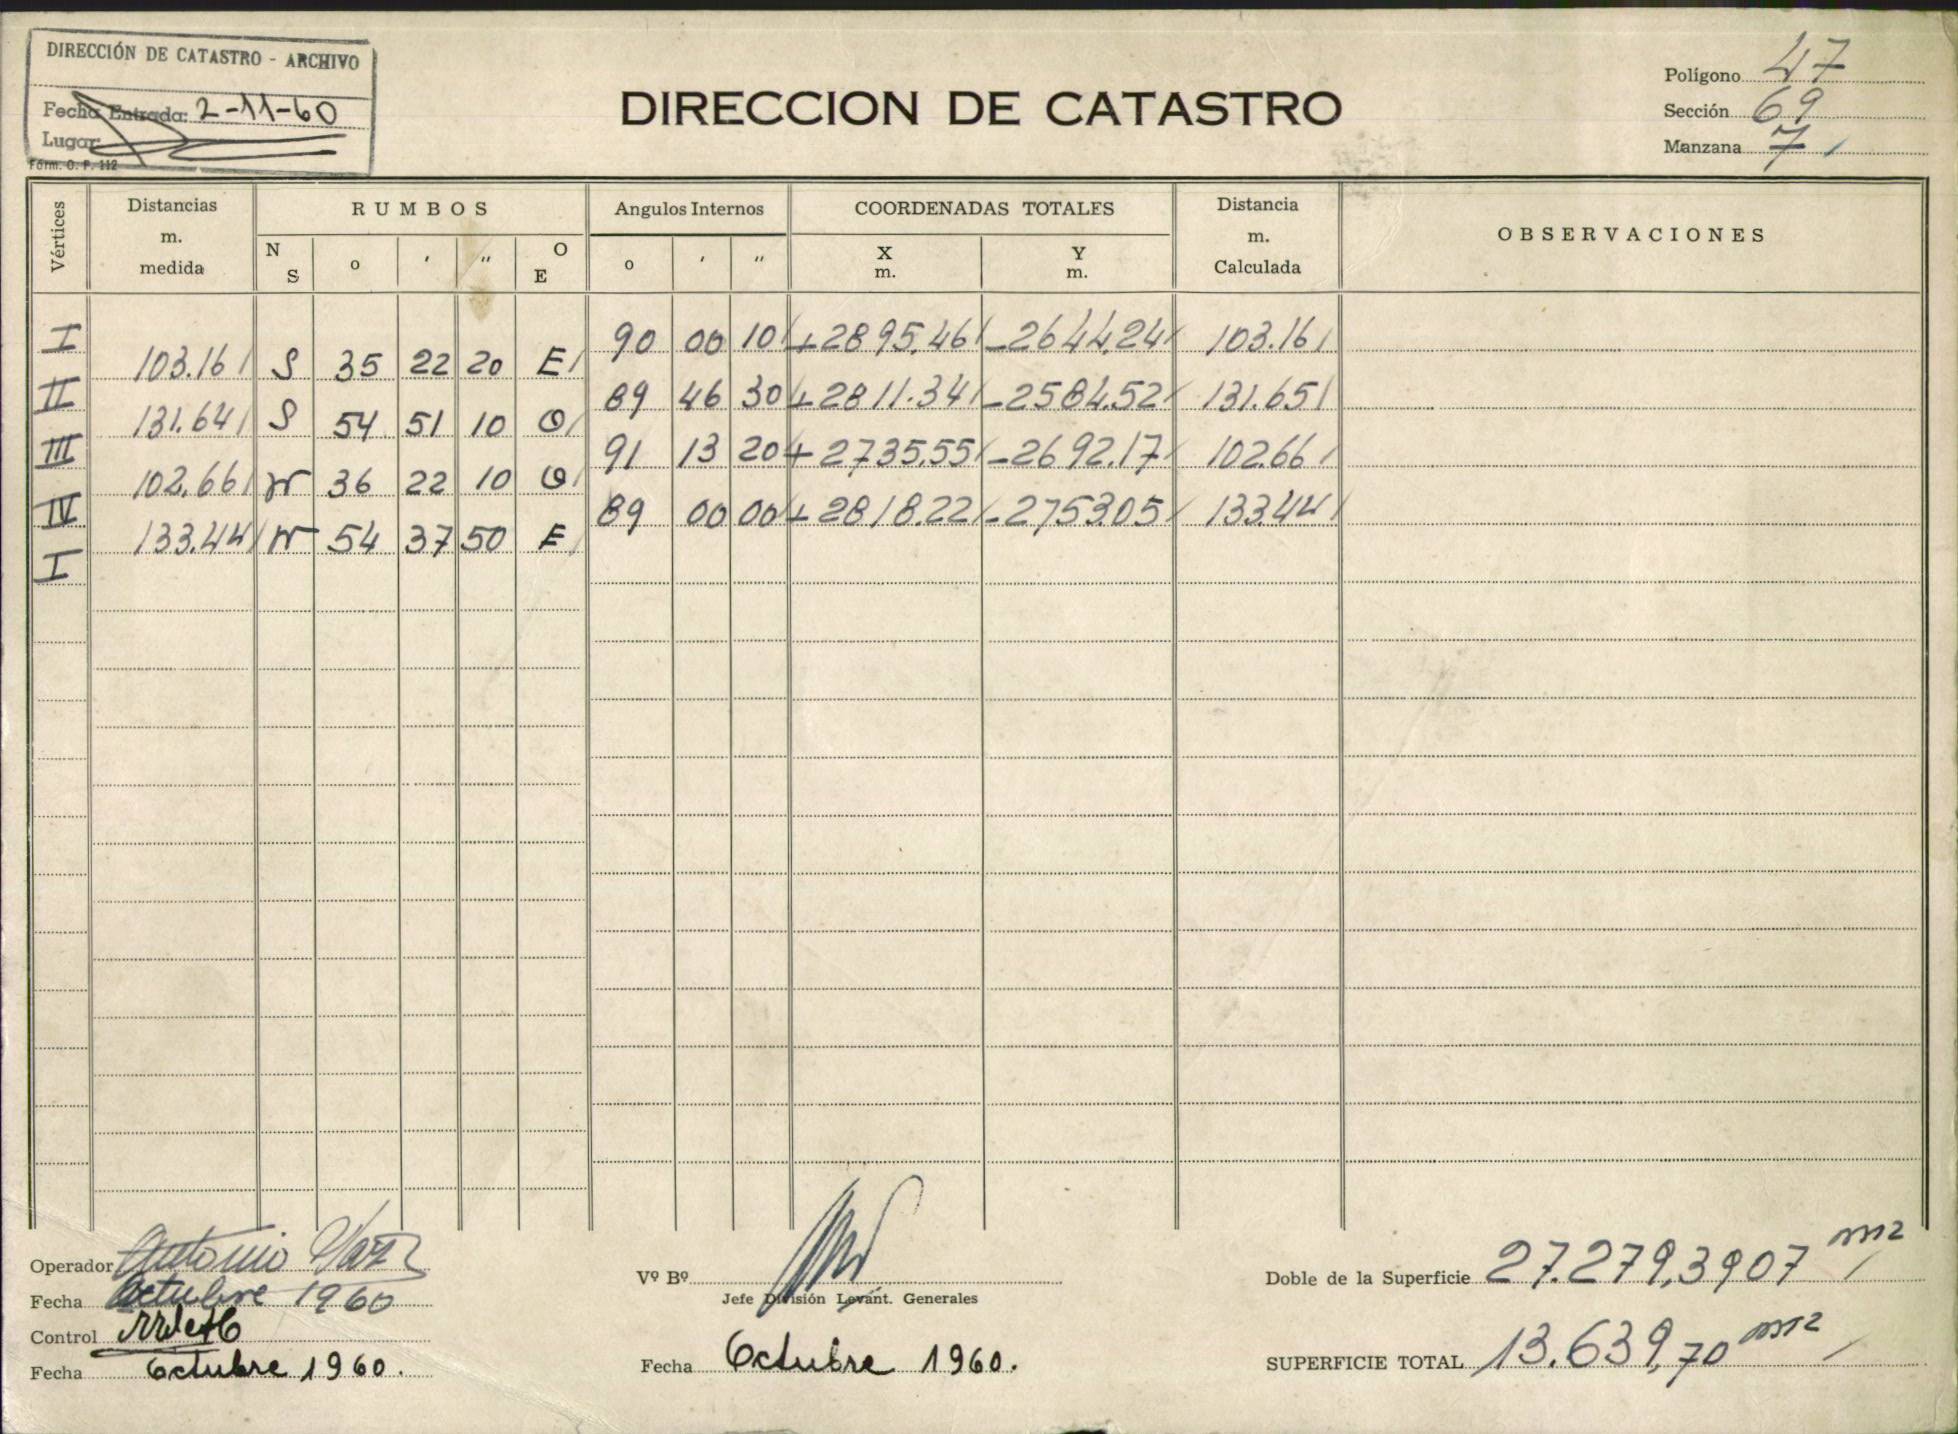 DIRECCIÓN DE CATASTRO - ARCHIVO
Fecha Entrada: 2-11-60
Lugar
Form. O. P. 112
DIRECCION DE CATASTRO
Polígono 47
Sección 69
Manzana 7
Vértices
Distancias m. medida
RUMBOS
Angulos Internos
COORDENADAS TOTALES
Distancia m. Calculada
OBSERVACIONES
N S o ' " O E
o ' "
X m.
Y m.
I 90 00 10 +2895.46 -2644.24 103.16
103.16 S 35 22 20 E
II 89 46 30 +2811.34 -2584.52 131.65
131.64 S 54 51 10 O
III 91 13 20 +2735.55 -2692.17 102.66
102.66 N 36 22 10 O
IV 89 00 00 +2818.22 -2753.05 133.44
133.44 N 54 37 50 E
I
Operador Antonio
Fecha Octubre 1960
Control
Fecha Octubre 1960.
Vº Bº
Jefe División Levant. Generales
Fecha Octubre 1960.
Doble de la Superficie 27.279,3907 m2
SUPERFICIE TOTAL 13.639,70 m2